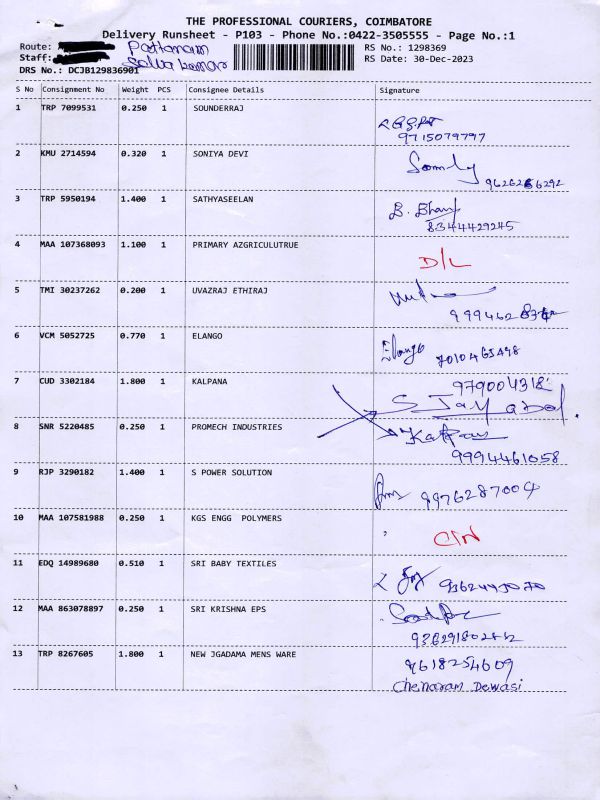 THE PROFESSIONAL COURIERS, COIMBATORE
Delivery Runsheet - P103 - Phone No.:0422-3505555 - Page No.:1
Route: Pattanam RS No.: 1298369
Staff: Selva kumar RS Date: 30-Dec-2023
DRS No.: DCJB129836901
S No Consignment No Weight PCS Consignee Details Signature
1 TRP 7099531 0.250 1 SOUNDERRAJ
9715079797
2 KMU 2714594 0.320 1 SONIYA DEVI
3 TRP 5950194 1.400 1 SATHYASEELAN
8344429245
4 MAA 107368093 1.100 1 PRIMARY AZGRICULUTRUE
D/L
5 TMI 30237262 0.200 1 UVAZRAJ ETHIRAJ
6 VCM 5052725 0.770 1 ELANGO
Elango 7010465498
7 CUD 3302184 1.800 1 KALPANA
979004318
8 SNR 5220485 0.250 1 PROMECH INDUSTRIES
9994461058
9 RJP 3290182 1.400 1 S POWER SOLUTION
9976287004
10 MAA 107581988 0.250 1 KGS ENGG POLYMERS
C/N
11 EDQ 14989680 0.510 1 SRI BABY TEXTILES
12 MAA 863078897 0.250 1 SRI KRISHNA EPS
13 TRP 8267605 1.800 1 NEW JGADAMA MENS WARE
9618254609
Chenaram Dewasi